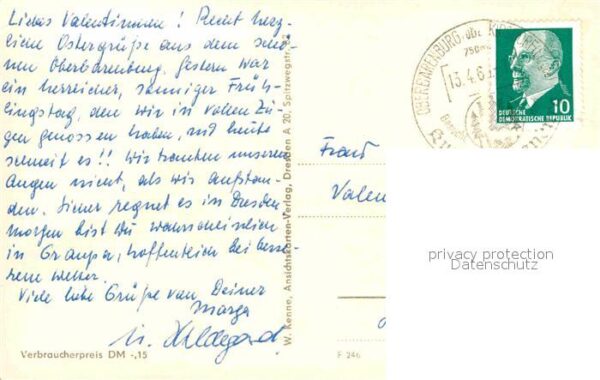 Liebes Valentinchen! Recht herz-
liche Ostergrüße aus dem schö-
nen Oberbärenburg. Gestern war
ein herrlicher, sonniger Früh-
lingstag, den wir in vollen Zü-
gen genossen haben, und heute
schneit es!! Wir trauten unseren
Augen nicht, als wir aufstan-
den. Sicher regnet es in Dresden
morgen bist Du wahrscheinlich
in Graupa, hoffentlich bei besse-
rem Wetter.
Viele liebe Grüße von Deiner
Marga
u. Hildegard
Verbraucherpreis DM -,15
W. Kenne, Ansichtskarten-Verlag, Dresden A 20, Spitzwegstr.
F 246
OBERBÄRENBURG über
13.4.6
10
DEUTSCHE
DEMOKRATISCHE REPUBLIK
Frau
Valen
privacy protection
Datenschutz